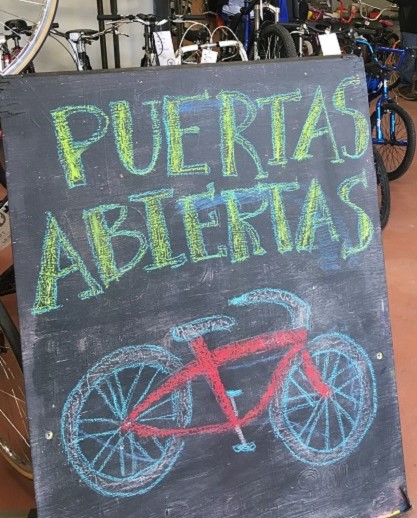 PUERTAS
ABIERTAS